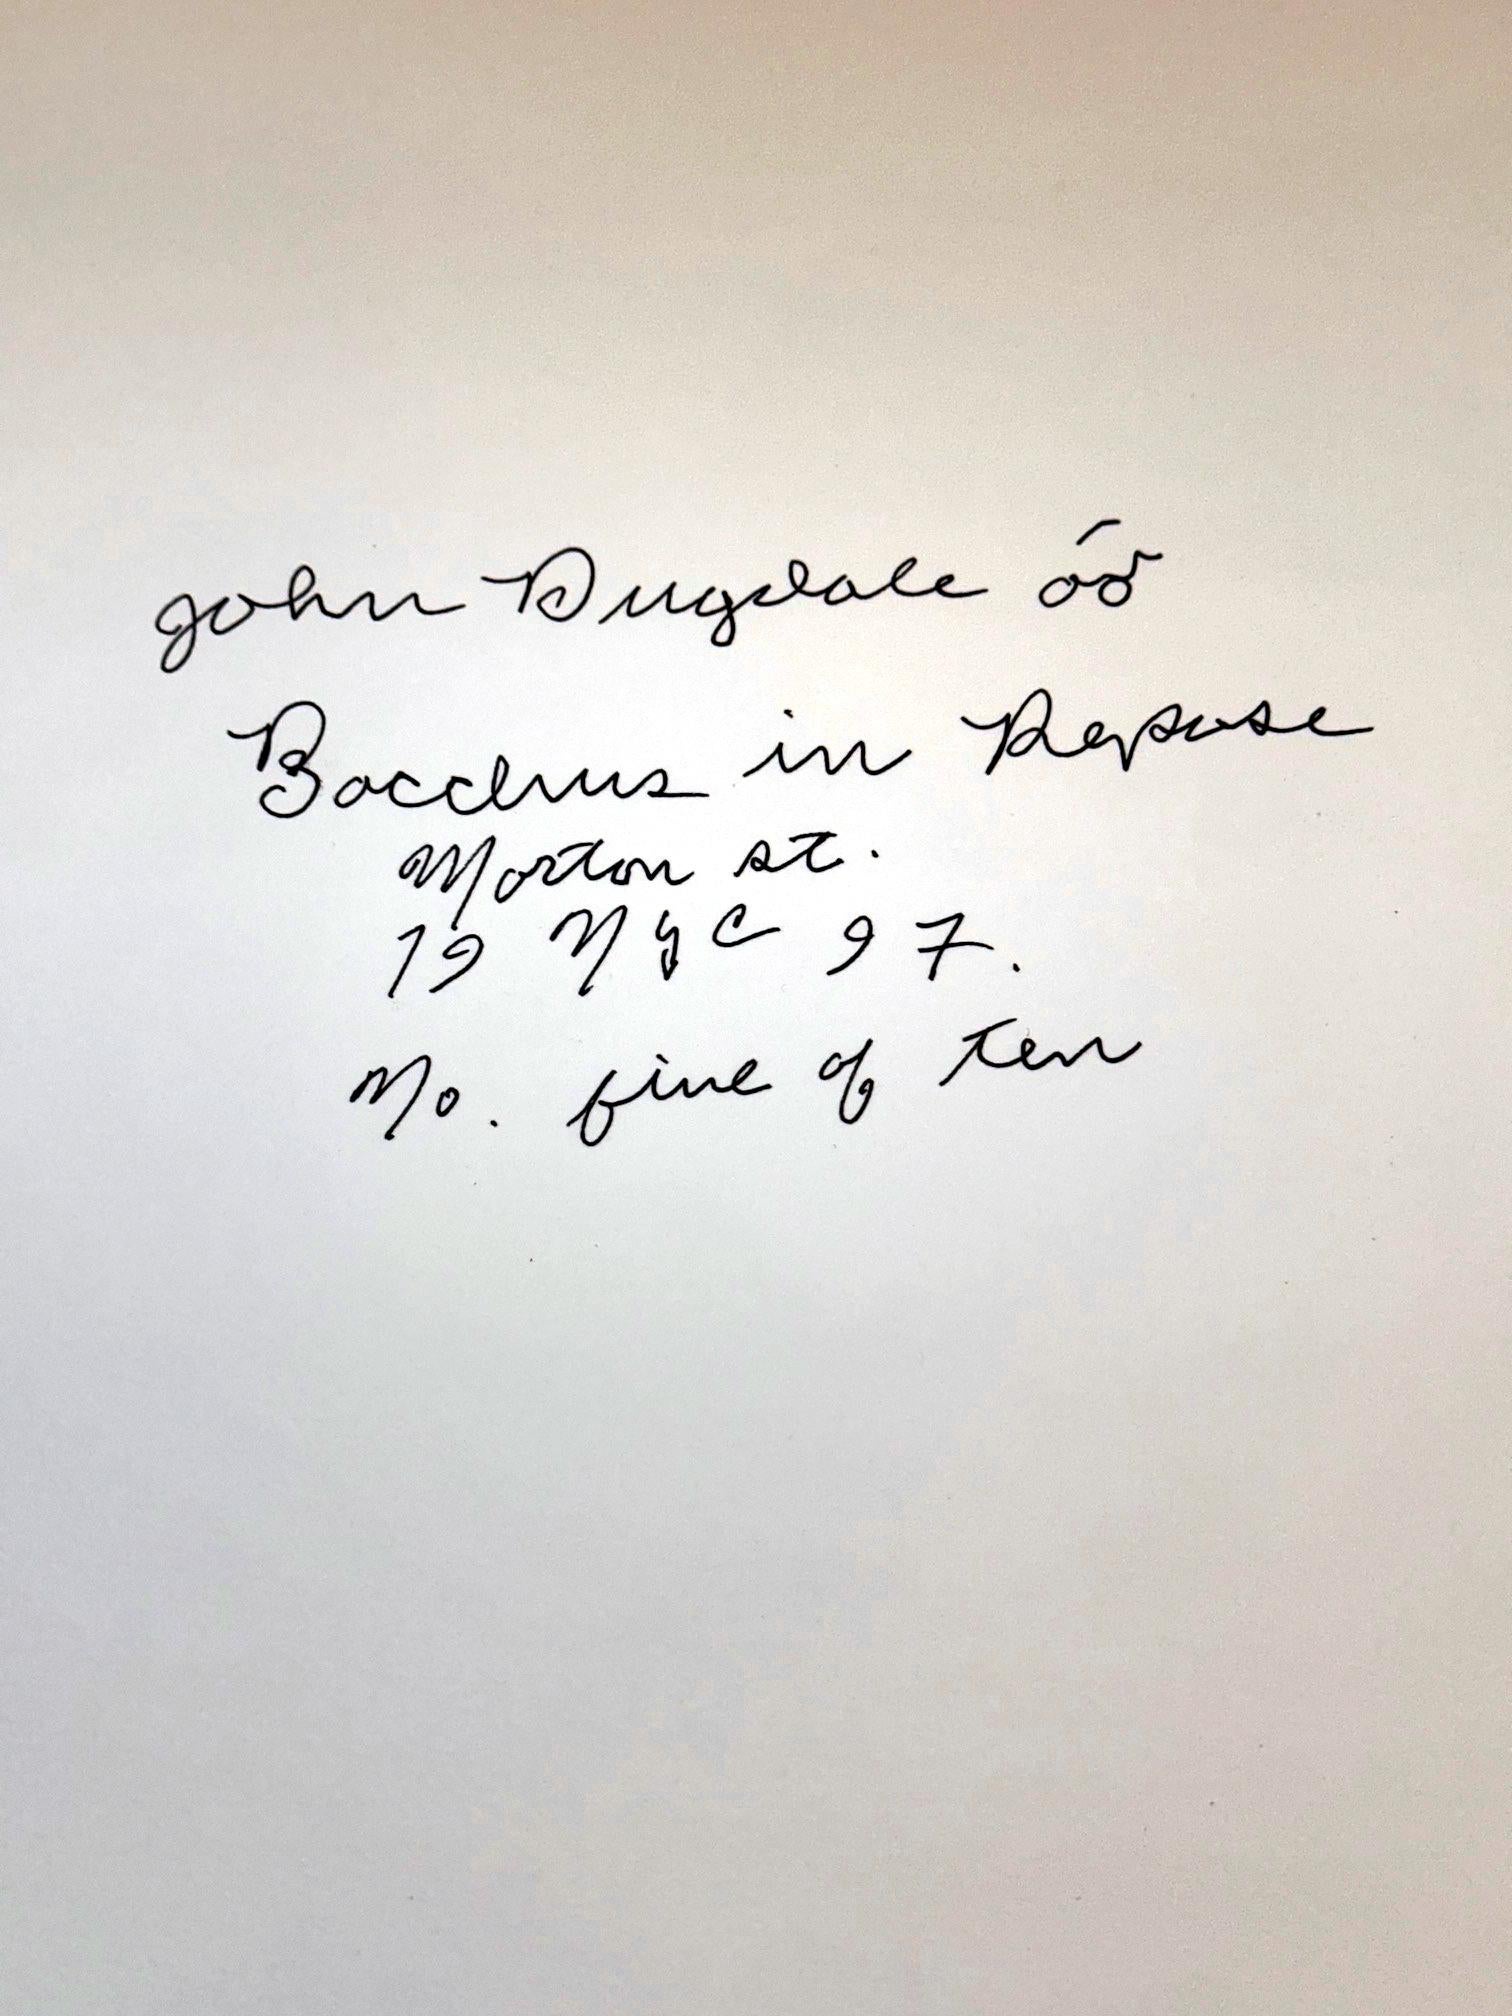 John Dugdale
Bacchus in Repose
Morton st.
19 NYC 97.
No. five of ten